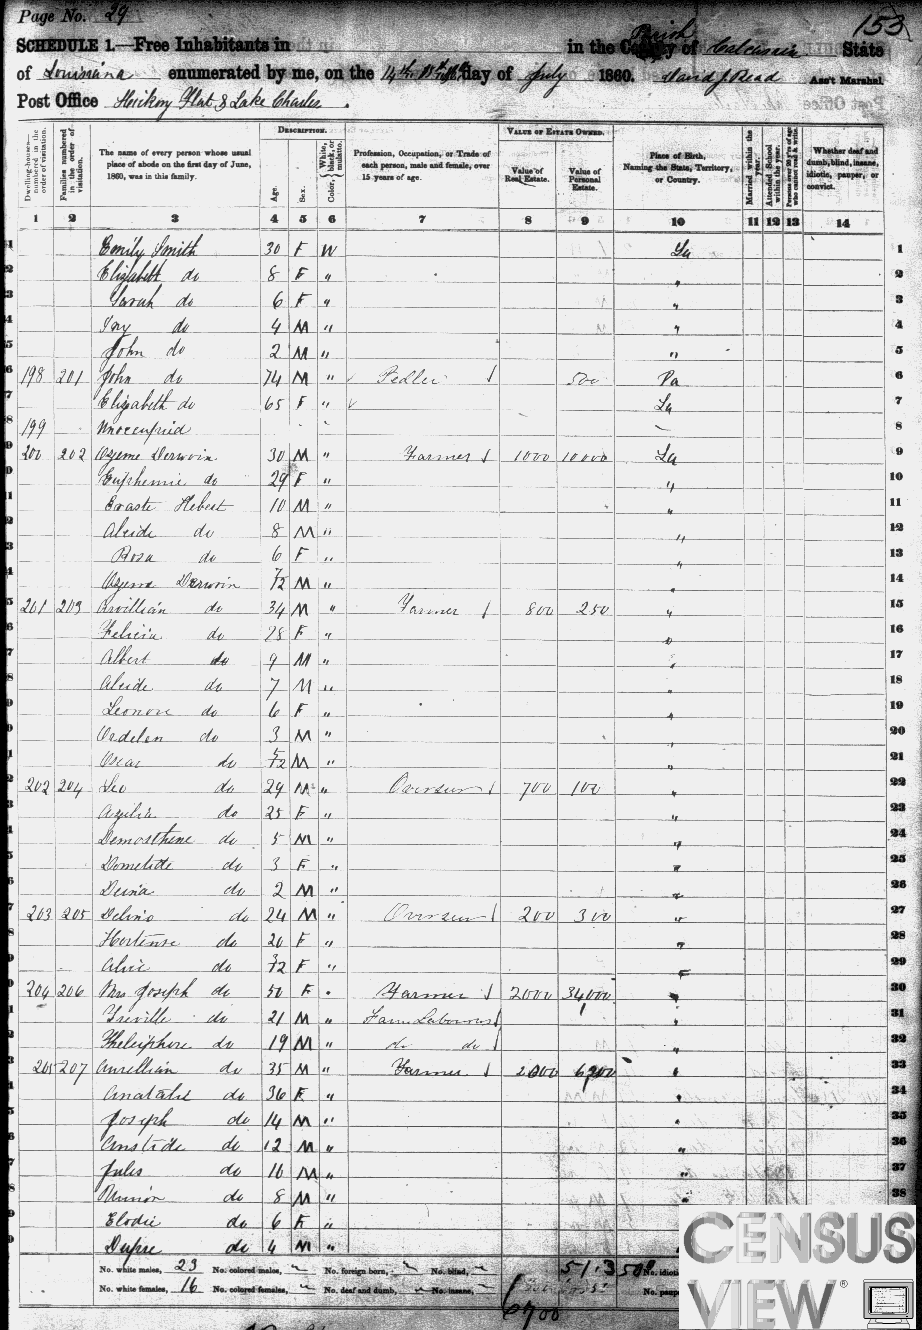 Page No. 29
153
SCHEDULE 1.—Free Inhabitants in in the County of Calcasieu State
Parish
of Louisiana enumerated by me, on the 14th day of July 1860. David J. Read Ass't Marshal
Post Office Hickory Flat & Lake Charles.
DESCRIPTION. VALUE OF ESTATE OWNED.
Dwelling-houses—numbered in the order of visitation.
Families numbered in the order of visitation.
The name of every person whose usual place of abode on the first day of June, 1860, was in this family.
Age.
Sex.
Color, White, black, or mulatto.
Profession, Occupation, or Trade of each person, male and female, over 15 years of age.
Value of Real Estate.
Value of Personal Estate.
Place of Birth, Naming the State, Territory, or Country.
Married within the year.
Attended School within the year.
Persons over 20 y'rs of age who cannot read & write.
Whether deaf and dumb, blind, insane, idiotic, pauper, or convict.
1 2 3 4 5 6 7 8 9 10 11 12 13 14
1 Emily Smith 30 F W La 1
2 Elizabeth do 8 F " " 2
3 Sarah do 6 F " " 3
4 do 4 M " " 4
5 John do 2 M " " 5
6 198 201 John do 74 M " Pedler 500 Pa 6
7 Elizabeth do 65 F " La 7
8 199 Unoccupied 8
9 200 202 Ozeme Derwoin 30 M " Farmer 1000 10000 La 9
Euphemie do 29 F " " 10
11 Evaste Hebert 10 M " " 11
2 Alcide do 8 M " " 12
3 Rosa do 6 F " " 13
4 Ozema Derwoin 7/12 M " " 14
5 201 203 Arvillian do 34 M " Farmer 800 250 " 15
6 Felicia do 28 F " " 16
7 Albert do 9 M " " 17
8 Alcide do 7 M " " 18
9 Leonore do 6 F " " 19
Ordelin do 3 M " " 20
1 Oscar do 5/12 M " " 21
2 202 204 Leo do 29 M " Overseer 700 100 " 22
Azelia do 25 F " " 23
Demosthene do 5 M " " 24
5 Dometide do 3 F " " 25
6 do 2 M " " 26
7 203 205 Delino do 24 M " Overseer 200 300 " 27
8 Hortense do 20 F " " 28
9 Alice do 3/12 F " " 29
204 206 Mrs Joseph do 50 F " Farmer 2000 34000 " 30
1 Treville do 21 M " Farm Labourer " 31
2 Thelesphore do 19 M " do do " 32
3 205 207 Aurellian do 35 M " Farmer 2000 " 33
do 36 F " " 34
5 Joseph do 14 M " 35
6 do 12 M " " 36
7 Jules do 10 M " " 37
8 do 8 M " " 38
9 Elodie do 6 F "
Dupre do 4 M "
No. white males, 23 No. colored males, No. foreign born, No. blind,
No. white females, 16 No. colored females, No. deaf and dumb, No. insane,
6700
CENSUS
VIEW®